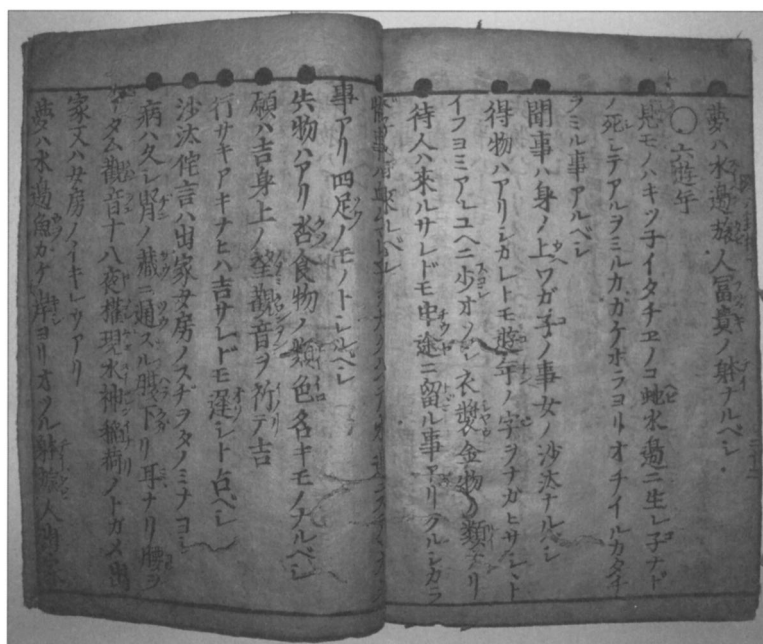 夢ハ水邉旅人冨貴ノ躰ナルベシ
〇六渡年
見モノハキツ子イタチヱノコ虵水邉ニ生レ子ナド
ノ死シテアルヲミルカガケホラヨリオチイルカタチ
ヲミル事アルベシ
聞事ハ身ノ上ワガ子ノ事女ノ沙汰ナルベシ
得物ハアリシカレトモ年ノ字ヲナガヒサシト
イフヨミアルユヘニ少オソシ衣裳金物ノ類ナリ
待人ハ来ルサレドモ中途ニ留ル事アリクルシカラ
事アリ四足ノモノトシルベシ
失物ハアリ食物ノ類色名キモノナルベシ
願ハ吉身上ノ望觀音ヲ祈テ吉
行サキアキナヒハ吉サレドモ遅シト占ベシ
沙汰侘言ハ出家女房ノスヂヲタノミナヨシ
病ハ久シ腎ノ藏ニ通スル腹下リ耳ナリ腰ヲ
アタム觀音十八夜權現水神稲荷ノトガメ出
家又ハ女房ノイキレウアリ
夢ハ水邉魚カケ岸ヨリオツル躰旅人